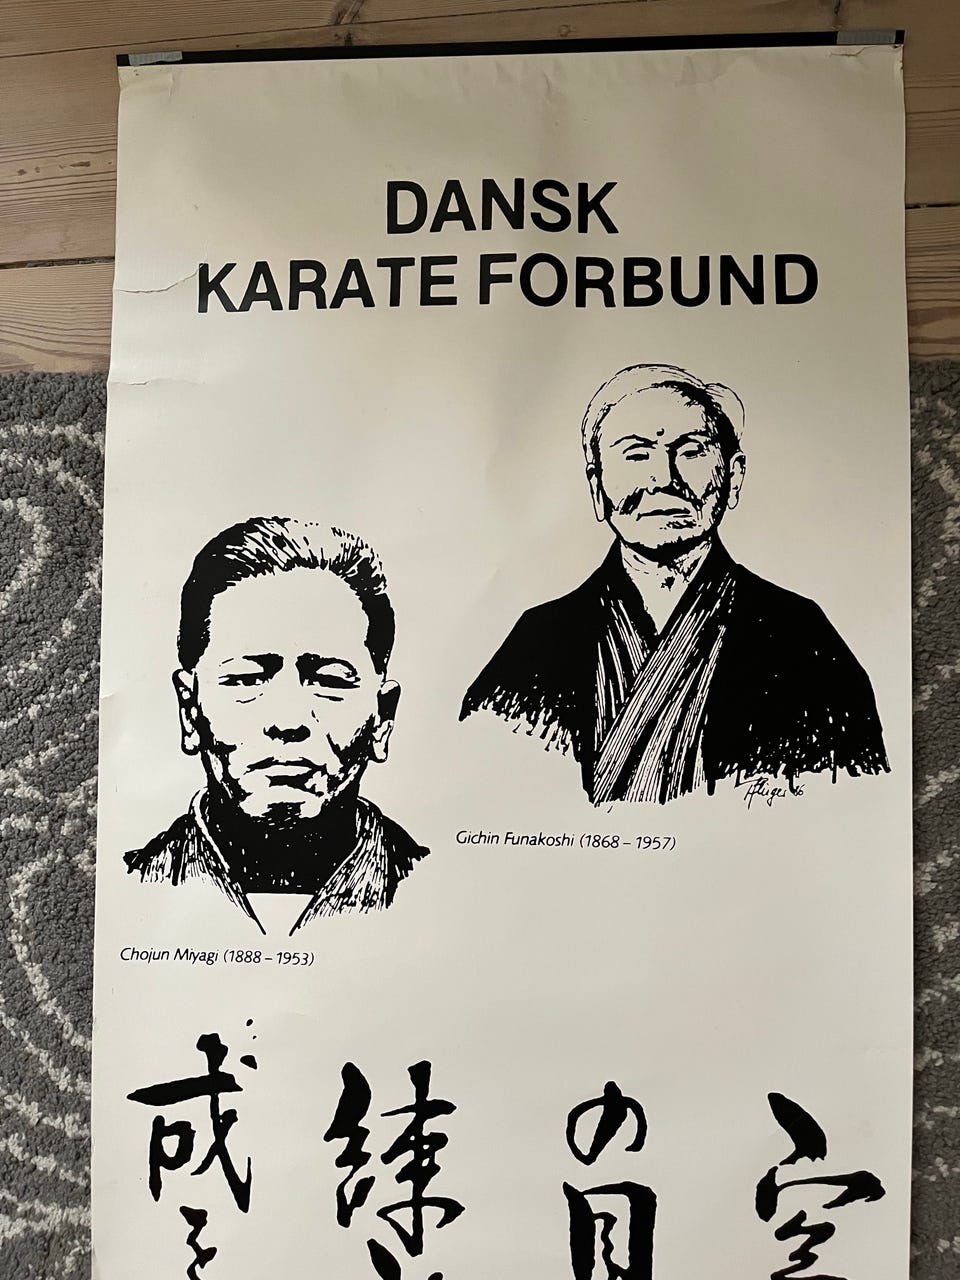 DANSK
KARATE FORBUND
Gichin Funakoshi (1868 – 1957)
Chojun Miyagi (1888 – 1953)
空
の目
練
成を